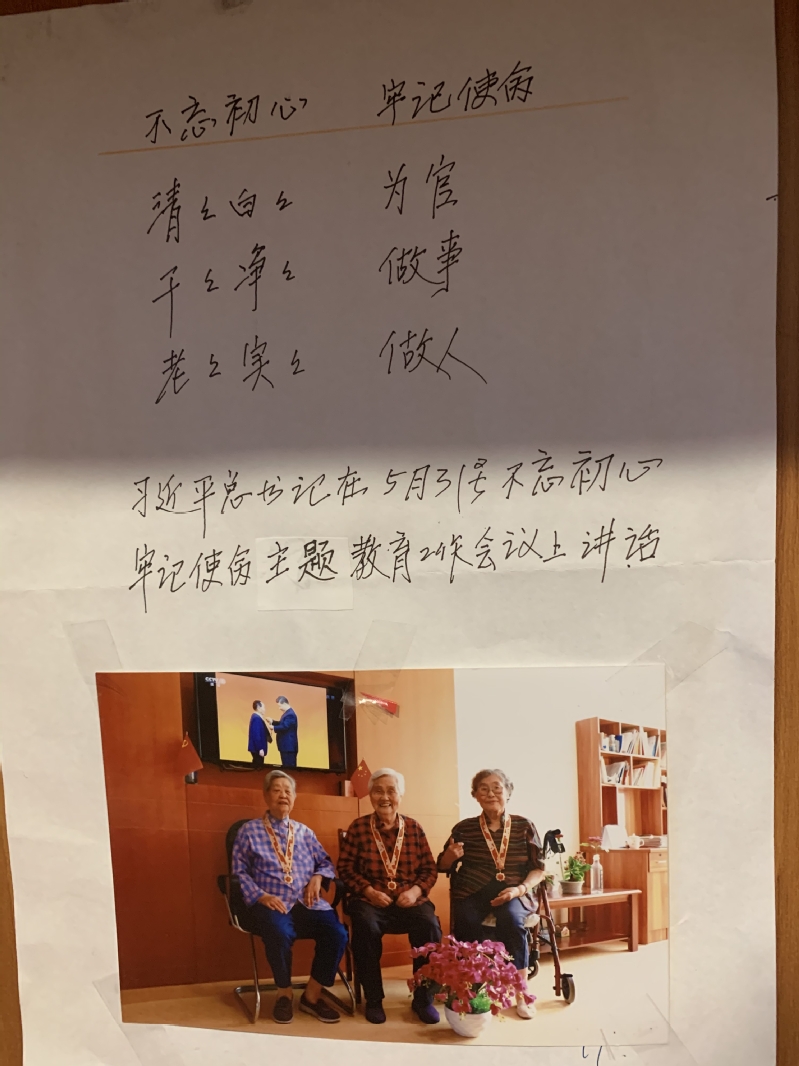 不忘初心 牢记使命
清々白々 为官
干々净々 做事
老々实々 做人
习近平总书记在5月31号不忘初心
牢记使命主题教育工作会议上讲话
CCTV